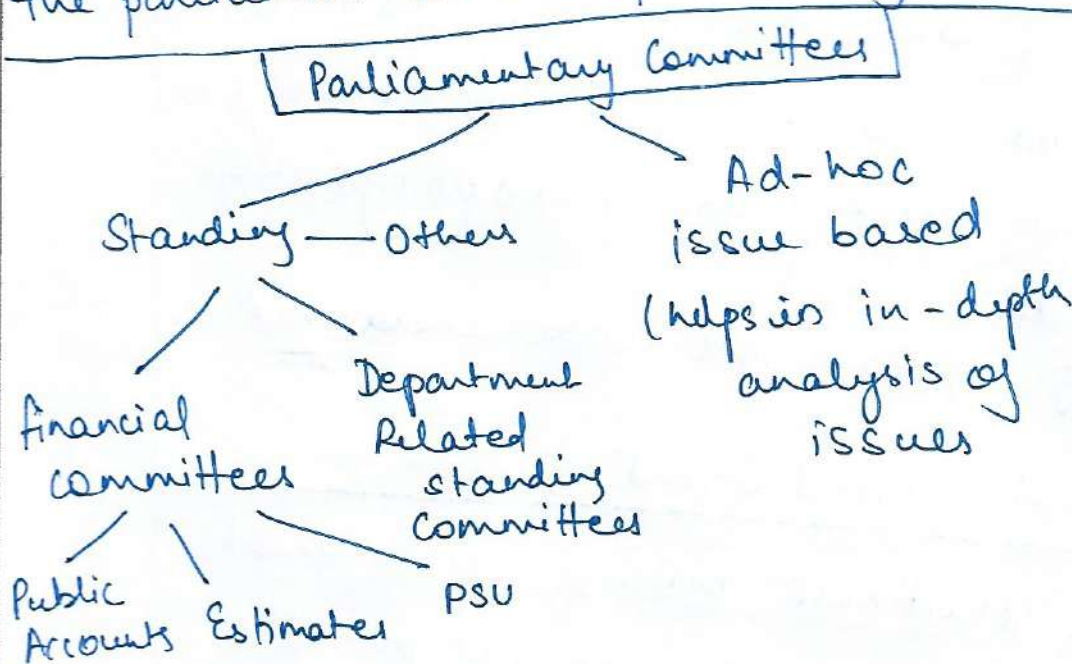 the
Parliamentary Committees
Standing — Others
Ad-hoc
issue based
(helps in in-depth
analysis of
issues
financial
committees
Department
Related
standing
committees
Public
Accounts
Estimates
PSU